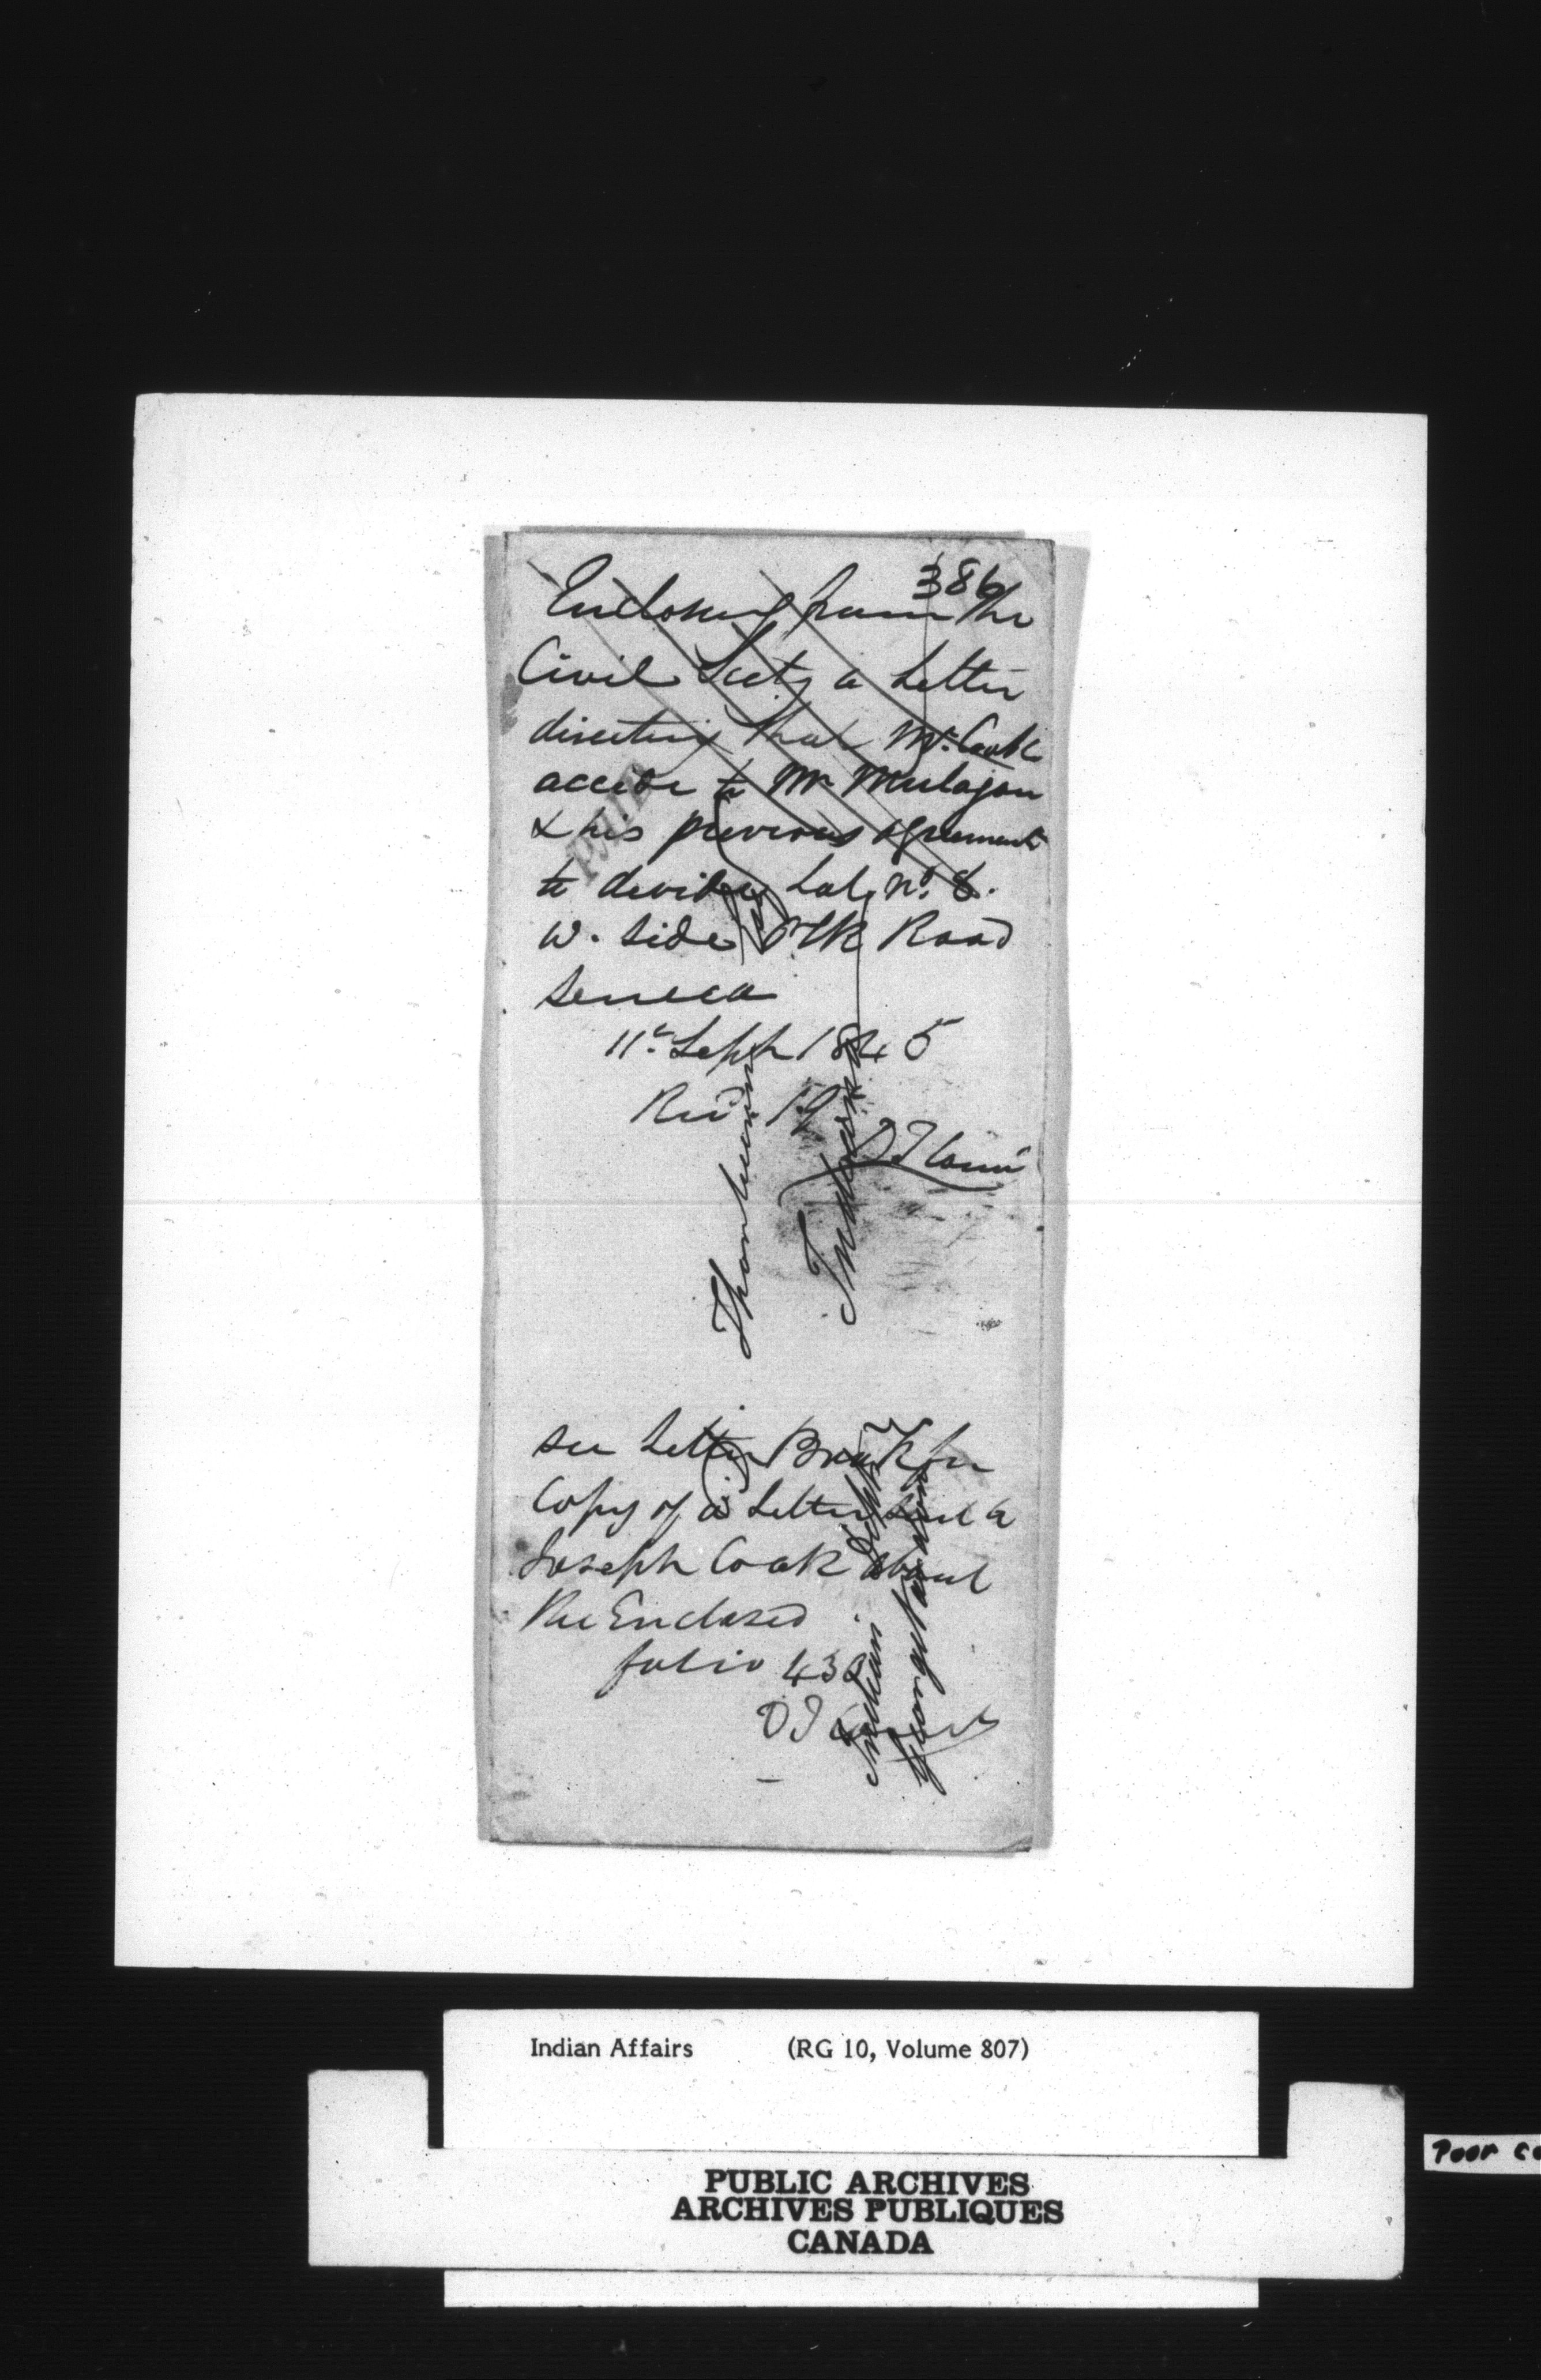 386
Enclosing from the
Civil Secty a Letter
directing that Mr. Cook
accede to Mr Mulajan
& his previous agreement
to devide Lot No. 8.
W. side Plk Road
Seneca
11th Sept 1845
Recd. 19
see Letter Book for
Copy of a Letter sent a
Joseph Cook about
the Enclosed
folio 432
Indian
Indian Affairs (RG 10, Volume 807)
PUBLIC ARCHIVES
ARCHIVES PUBLIQUES
CANADA
Poor